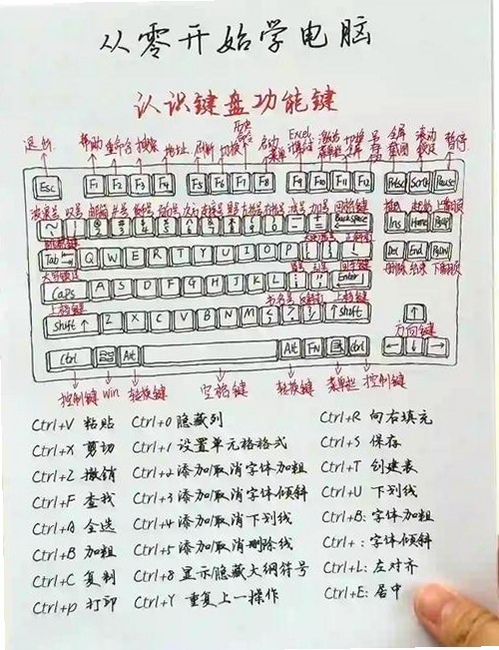 从零开始学电脑
认识键盘功能键
退出 帮助 重命名 搜索 地址 刷新 切换 启动菜单 全屏截图 滚动锁定 暂停
Esc F1 F2 F3 F4 F5 F6 F7 F8 F9 F10 F11 F12 PrtSc Scrl Pause
Backspace Ins Home PgUp
Tab Q W E R T Y U I O P Del End PgDn
Caps A S D F G H J K L Enter 删除 结束 下翻页
Shift ↑ Z X C V B N M ↑ Shift ↑
方向键
Ctrl Alt Alt FN Ctrl ← ↓ →
控制键 Win 转换键 空格键 转换键 菜单栏 控制键
Ctrl+V 粘贴 Ctrl+0 隐藏列 Ctrl+R 向右填充
Ctrl+X 剪切 Ctrl+1 设置单元格格式 Ctrl+S 保存
Ctrl+Z 撤销 Ctrl+2 添加/取消字体加粗 Ctrl+T 创建表
Ctrl+F 查找 Ctrl+3 添加/取消字体倾斜 Ctrl+U 下划线
Ctrl+A 全选 Ctrl+4 添加/取消下划线 Ctrl+B: 字体加粗
Ctrl+B 加粗 Ctrl+5 添加/取消删除线 Ctrl+ : 字体倾斜
Ctrl+C 复制 Ctrl+8 显示隐藏大纲符号 Ctrl+L: 左对齐
Ctrl+P 打印 Ctrl+Y 重复上一操作 Ctrl+E: 居中